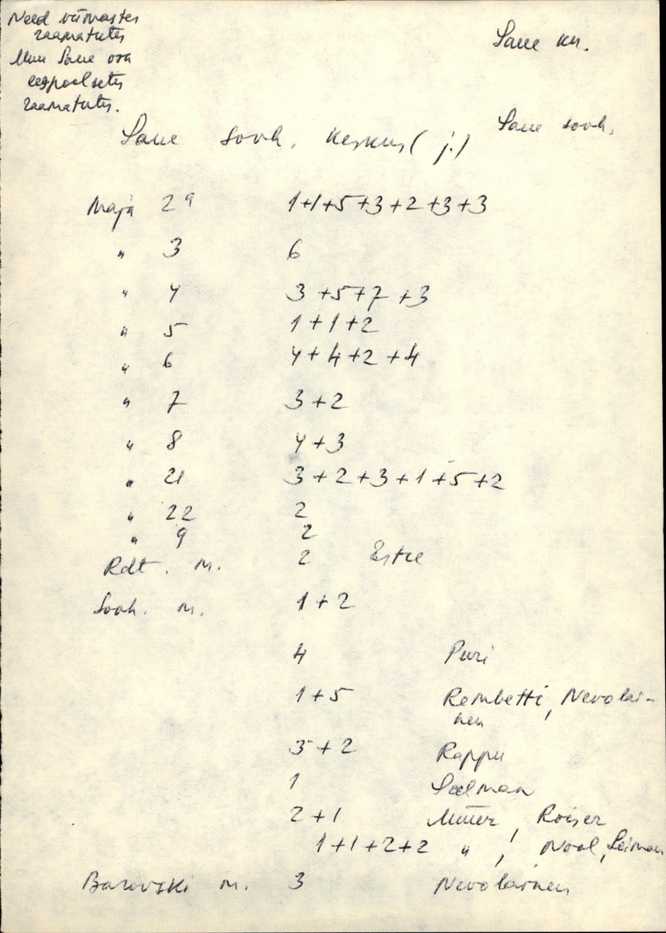 Need viimastes
raamatutes
Muu Saue on
eespoolsetes
raamatutes.
Saue kn.
Saue sovh.
Saue sovh. keskus ( j.)
Maja 2ª 1+1+5+3+2+3+3
" 3 6
" 4 3+5+7+3
" 5 1+1+2
" 6 4+4+2+4
" 7 3+2
" 8 4+3
" 21 3+2+3+1+5+2
" 22 2
" 9 2
Rdt. m. 2
Sovh. m. 1+2
4 Puri
1+5 Rembetti, Nevolai-
nen
3+2 Rappu
1 Saelman
2+1 Müür, Roiser
1+1+2+2 " , Nool, Leiman
m. 3 Nevolainen